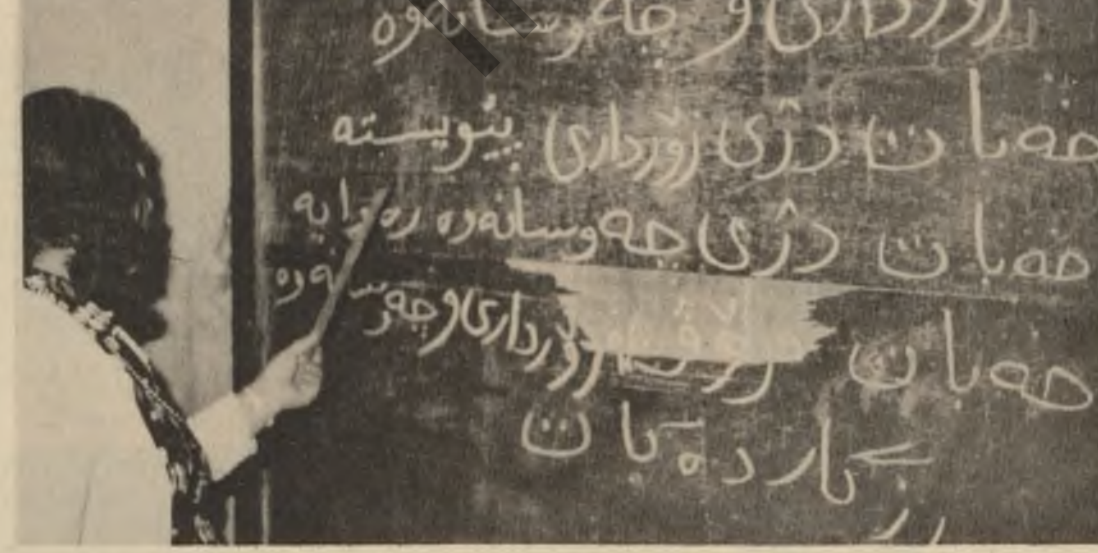 زۆرداری و چەوسانەوە
خەبات دژی زۆرداری پێویستە
خەبات دژی چەوسانەوە رەوایە
خەبات زۆرداری و چەوسانەوە
رزگار دەکات